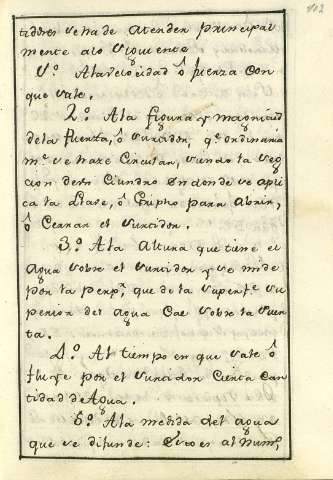 112
tidores se ha de atender principal
mente a lo siguiente
1º. A la velocidad ô fuerza con
que sale.
2º. A la figura y magnitud
de la fuenta, ô surtidor, qe. ordinaria
me. se hace circular, siendo la sec
cion de un cilindro en donde se apli
ca la llave, ô Gripho para abrir,
ô cerrar el surtidor.
3º. A la altura que tiene el
agua sobre el surtidor y se mide
por la perpr. que de la superfe. su
perior del agua cae sobre la fuen
ta.
4º. Al tiempo en que sale ô
fluye por el surtidor cierta can
tidad de Agua.
5º. A la medida del agua
que se difunde: Esto es al num,